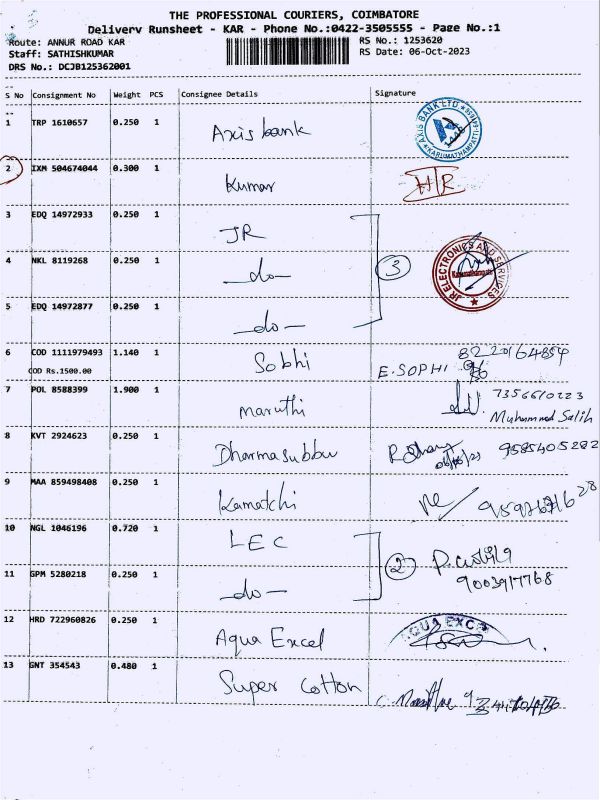 THE PROFESSIONAL COURIERS, COIMBATORE
Delivery Runsheet - KAR - Phone No.:0422-3505555 - Page No.:1
Route: ANNUR ROAD KAR
RS No.: 1253620
Staff: SATHISHKUMAR
RS Date: 06-Oct-2023
DRS No.: DCJB125362001
S No Consignment No Weight PCS Consignee Details Signature
1 TRP 1610657 0.250 1 Axis bank
AXIS BANK LTD
KARUMATHAMPATTI
2 IXM 504674044 0.300 1 Kumar
3 EDQ 14972933 0.250 1 JR
4 NKL 8119268 0.250 1 -do- 3
JR ELECTRONICS AND SERVICES
5 EDQ 14972877 0.250 1 -do-
6 COD 1111979493 1.140 1 Sobhi E.SOPHI 8220164854
COD Rs.1500.00
7 POL 8588399 1.900 1 maruthi 7356610223
Muhammad Salih
8 KVT 2924623 0.250 1 Dharmasubbu 9585405282
9 MAA 859498408 0.250 1 Kamatchi
10 NGL 1046196 0.720 1 LEC
11 GPM 5280218 0.250 1 -do- 2 9003917768
12 HRD 722960826 0.250 1 Aqua Excel
AQUA EXCEL
13 GNT 354543 0.480 1 Super Cotton